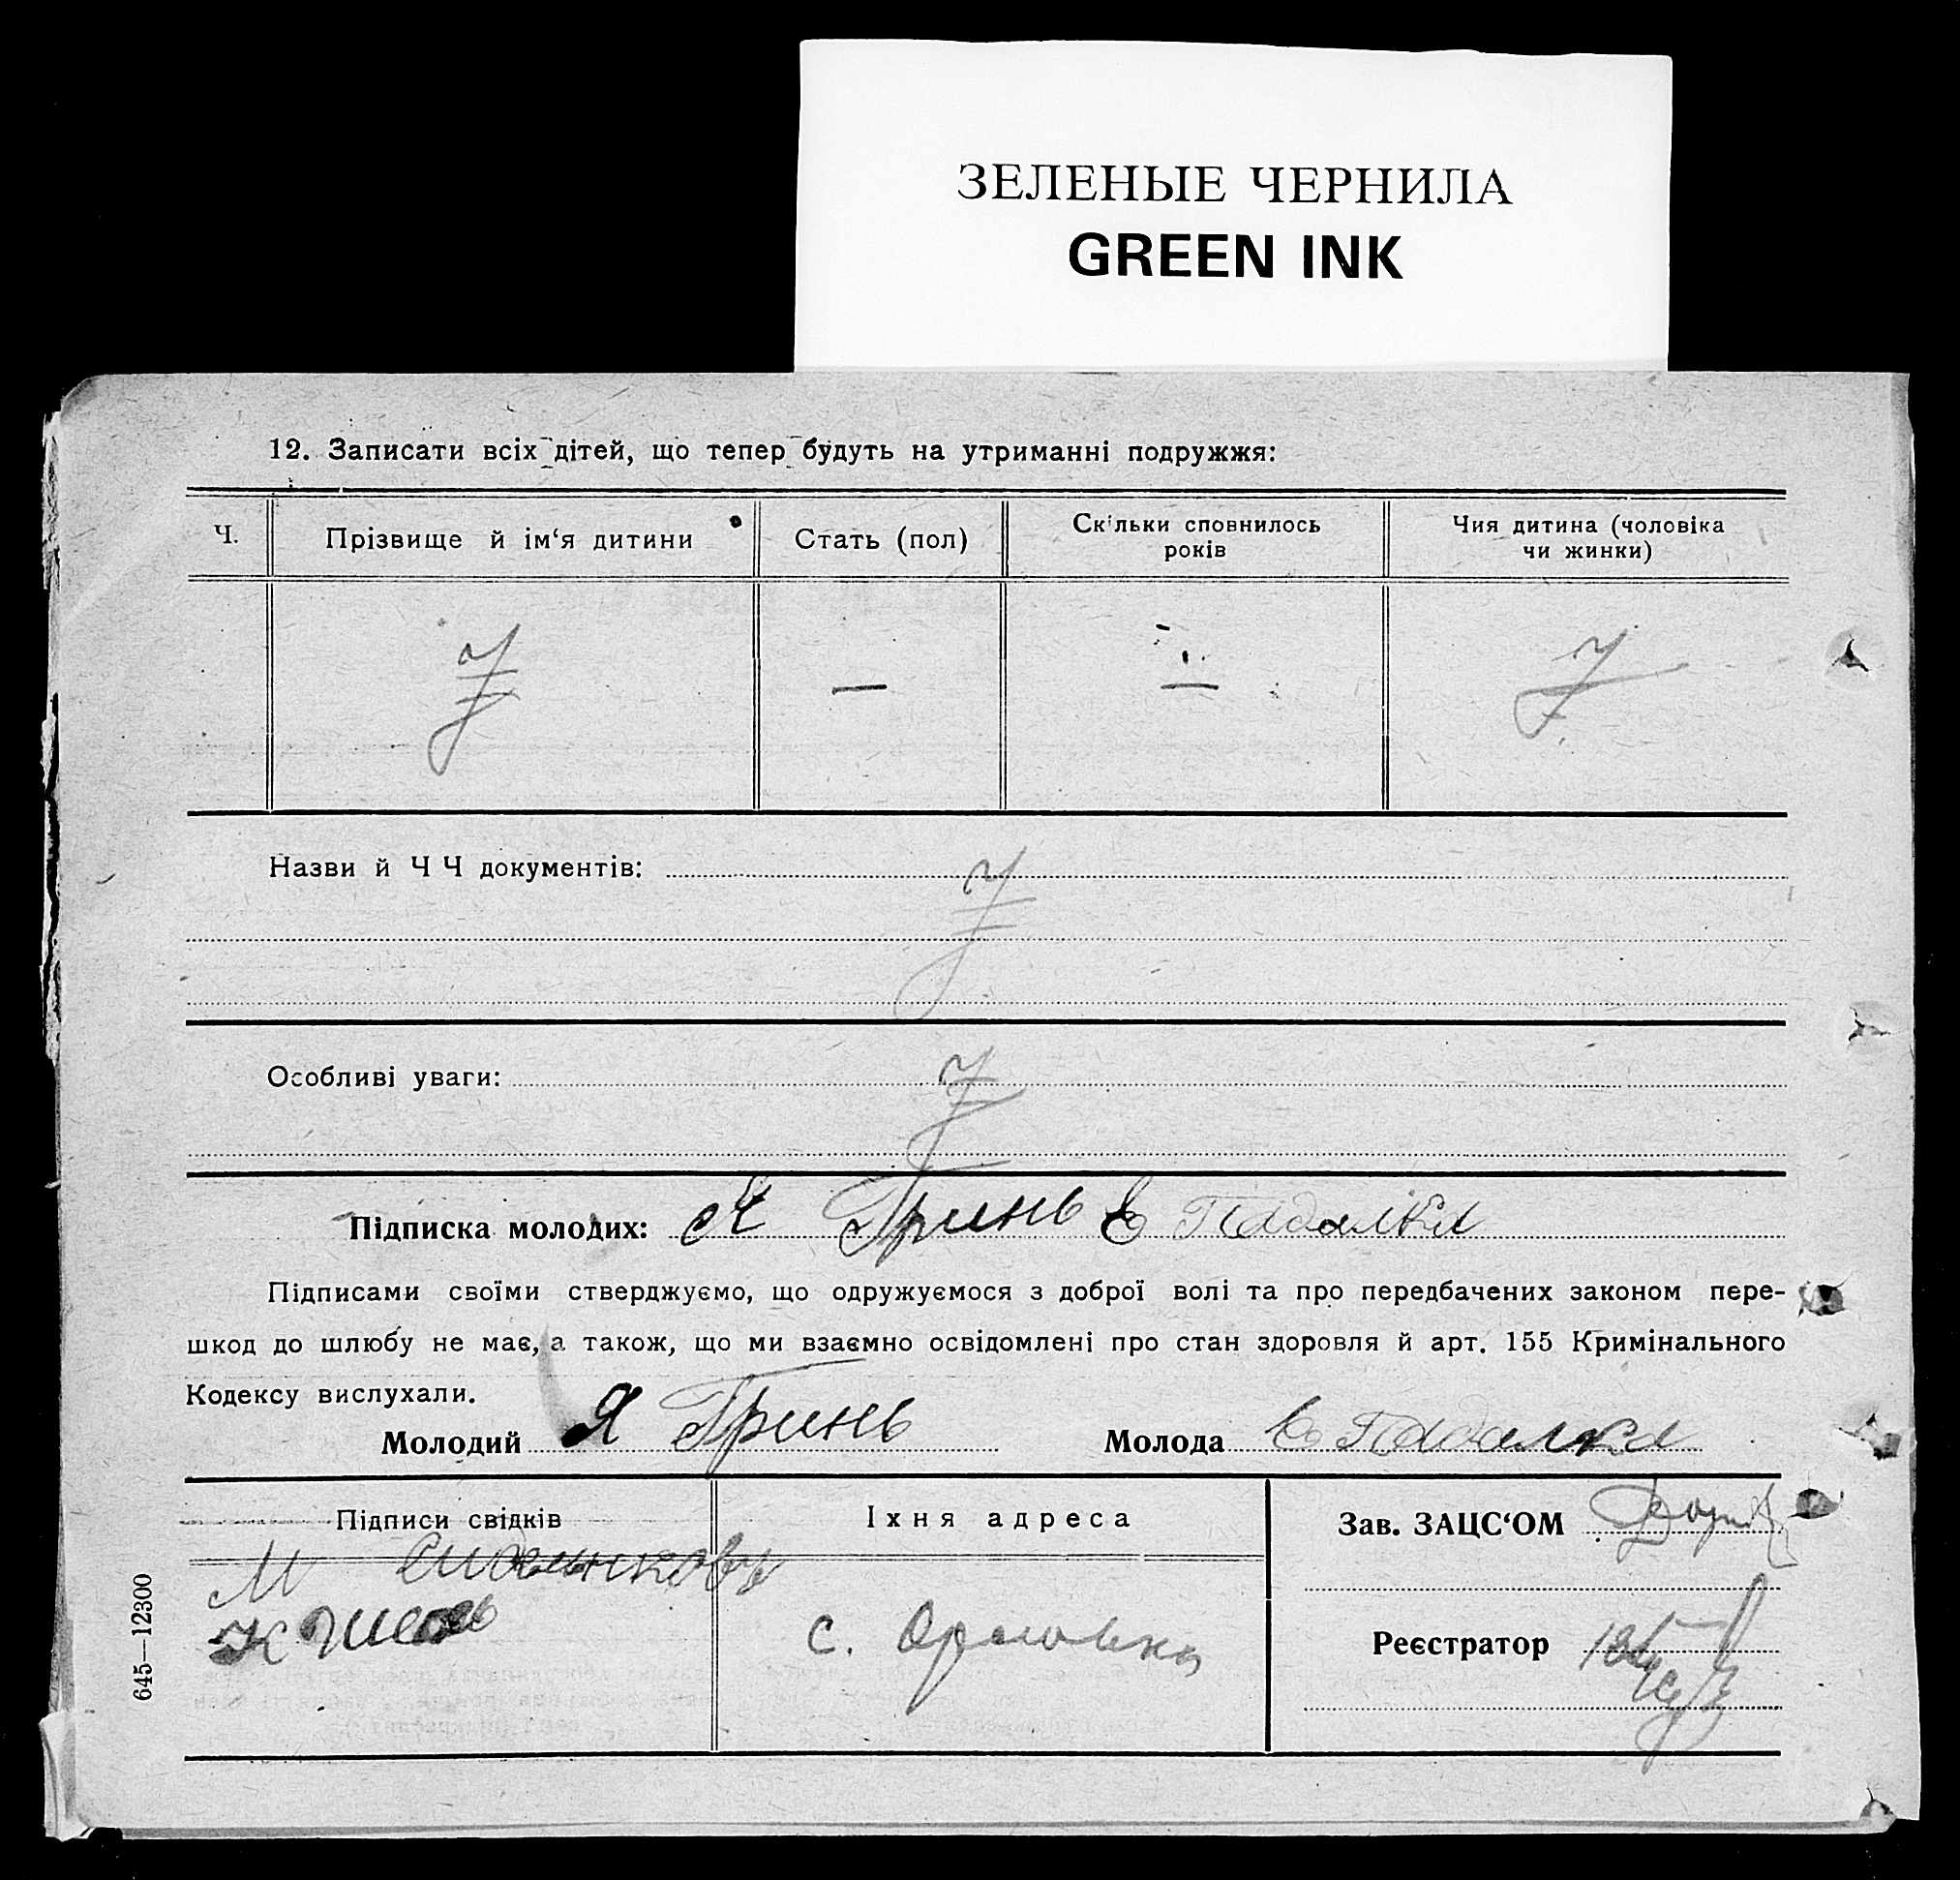 ЗЕЛЕНЫЕ ЧЕРНИЛА
GREEN INK
12. Записати всіх дітей, що тепер будуть на утриманні подружжя:
Ч.
Прізвище й ім‘я дитини
Стать (пол)
Скільки сповнилось
років
Чия дитина (чоловіка
чи жинки)
— —
Назви й Ч Ч документів:
Особливі уваги:
Підписка молодих: Я Гринь Є Падалка
Підписами своїми стверджуємо, що одружуємося з доброї волі та про передбачених законом пере-
шкод до шлюбу не має, а також, що ми взаємно освідомлені про стан здоровля й арт. 155 Кримінального
Кодексу вислухали.
Молодий Я Гринь Молода Є Падалка
Підписи свідків
Їхня адреса
Зав. ЗАЦС‘ОМ
М
К
с.
Реєстратор
645—12300